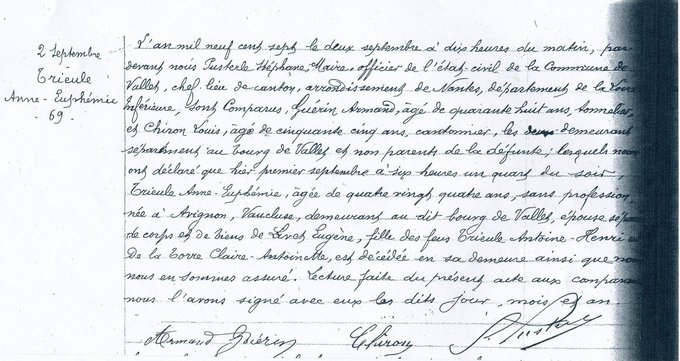 2 Septembre
Trieule
Anne-Euphémie
69.
L'an mil neuf cent sept le deux septembre à dix heures du matin, par
devant nous Pusterle Stéphane, Maire, officier de l'état civil de la Commune de
Vallet, chef lieu de canton, arrondissement de Nantes, département de la Loire
Inférieure, sont comparus, Guérin Armand, âgé de quarante huit ans, tonnelier
et Chiron Louis, âgé de cinquante cinq ans, cantonnier, les deux demeurant
séparément au bourg de Vallet et non parents de la défunte; lesquels nous
ont déclaré que hier premier septembre à six heures un quart du soir,
Trieule Anne-Euphémie, âgée de quatre vingt quatre ans, sans profession,
née à Avignon, Vaucluse, demeurant au dit bourg de Vallet, épouse
de corps et de biens de Eugène, fille des feus Trieule Antoine-Henri
De la Torre Claire-Antoinette, est décédée en sa demeure ainsi que nous
nous en sommes assuré. Lecture faite du présent acte aux
nous l'avons signé avec eux les dits jour, mois et an.
Armand Guérin Chiron